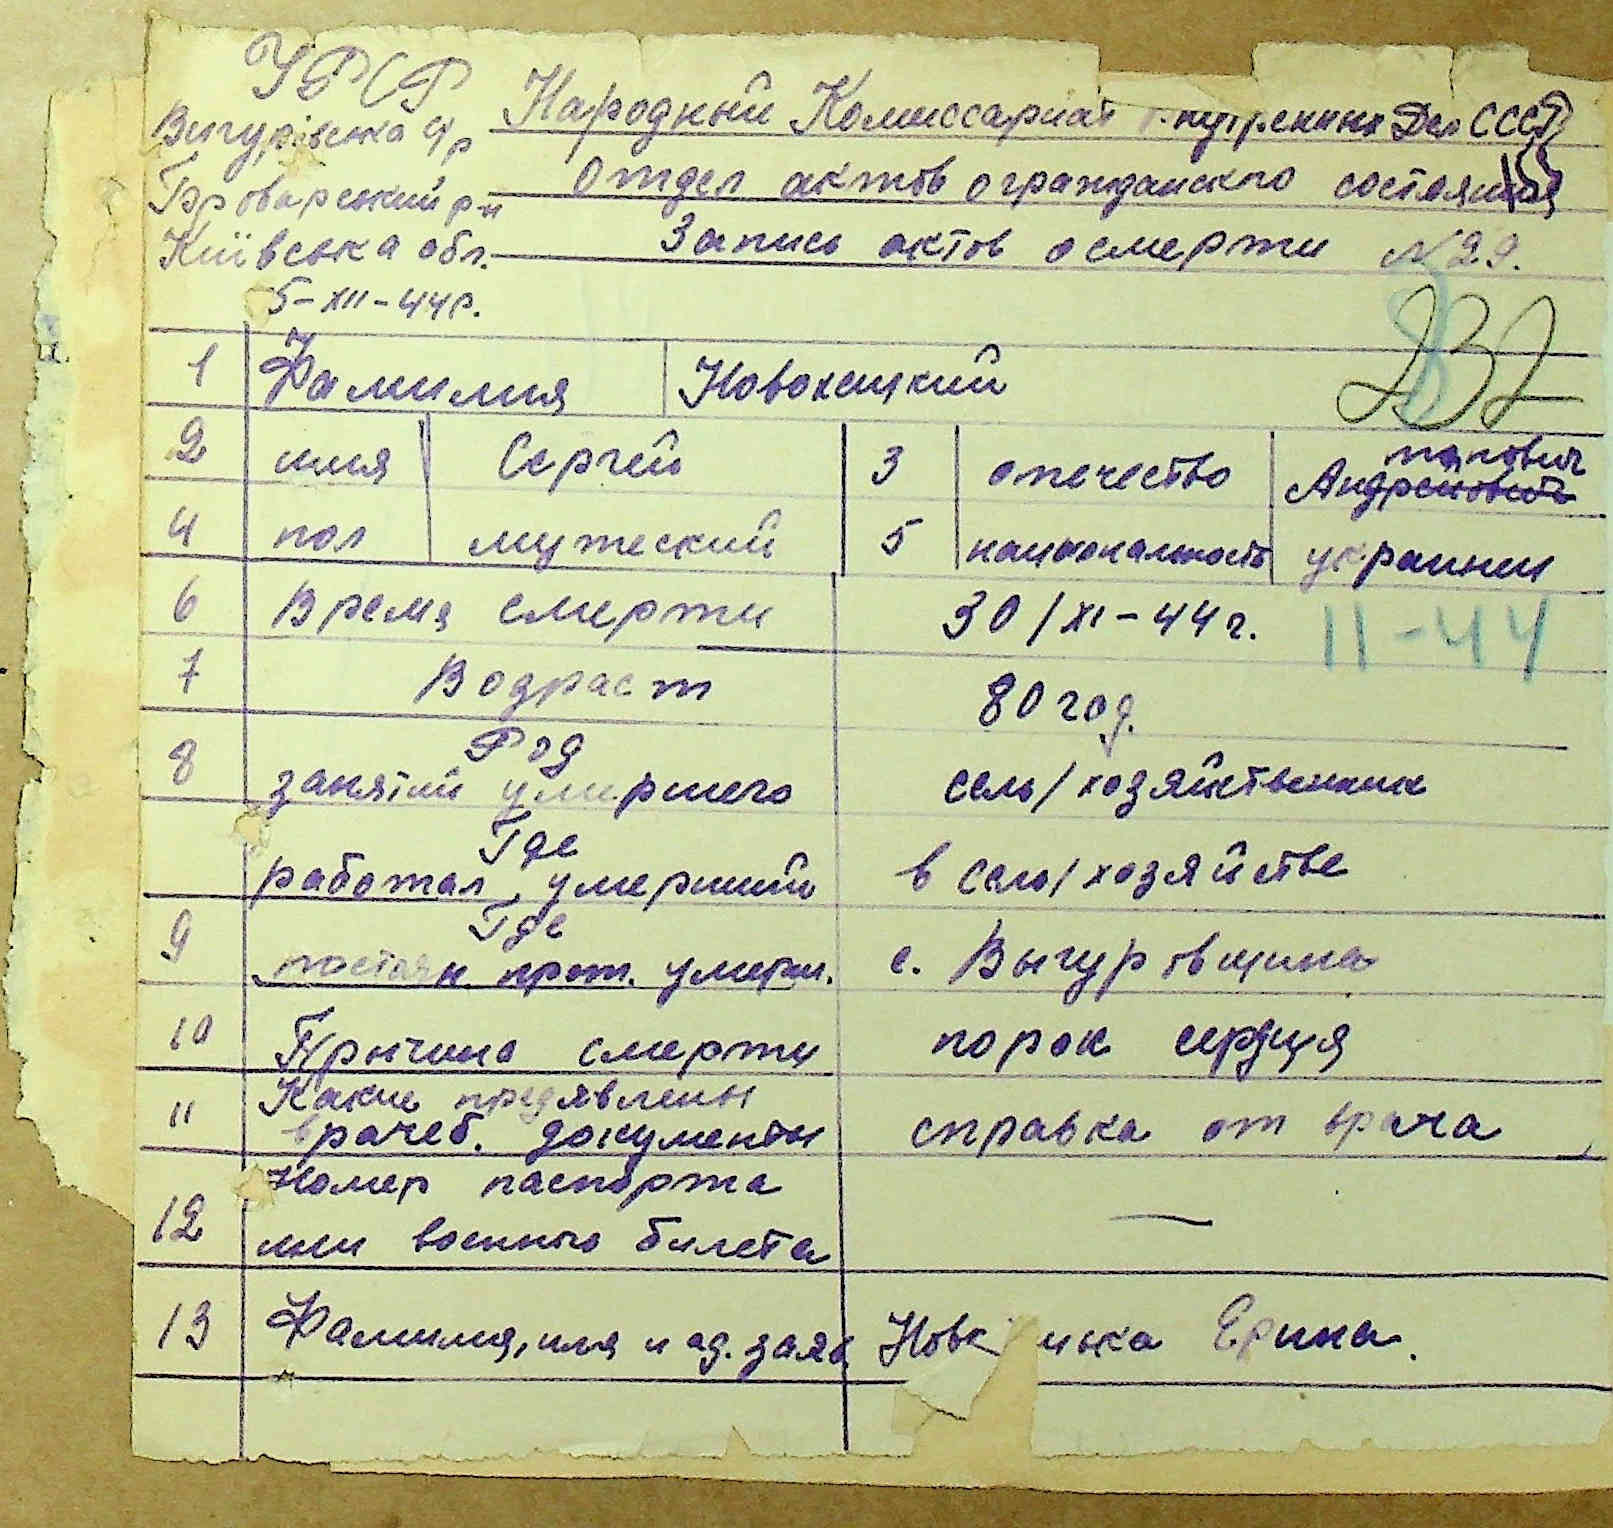 УРСР
Вигурівська с/р
Броварський р-н
Київська обл.
5-XII-44р.
Народный Комиссариат Внутренних Дел СССР
Отдел актов огражданского состояния
Запись актов о смерти N 29.
232
1 Фамилия Новохецкий
2 имя Сергей 3 отечество Андрейович
4 пол мужеский 5 национальность украинец
6 Время смерти 30/XI-44г. 11-44
7 Водраст 80 год.
8 Род занятий умершего село/хозяйственник
Где работал умерший в село/хозяйстве
9 Где постоян. прож. умерш. с. Выгуровщина
10 Прычина смерти порок сердця
11 Какие предявлены врачеб. документы справка от врача
12 Номер паспорта или военного билета —
13 Фамилия, имя и ад. заяв. Ерина.